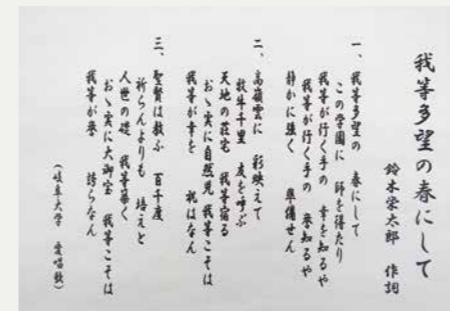 我等多望の春にして
鈴木栄太郎 作詞
一、我等多望の 春にして
この学園に 師を得たり
我等が行く手の 幸を知るや
我等が行く手の 誉知るや
静かに強く 準備せん
二、高嶺雲に 彩映えて
牧牛千里 友を呼ぶ
天地の荘宅 我等宿る
おゝ実に自然児 我等こそは
我等が幸を 祝はなん
三、聖賢は教ふ 百千度
祈らんよりも 培えと
人世の礎 我等築く
おゝ実に大御宝 我等こそは
我等が誉 誇らなん
(岐阜大学 愛唱歌)